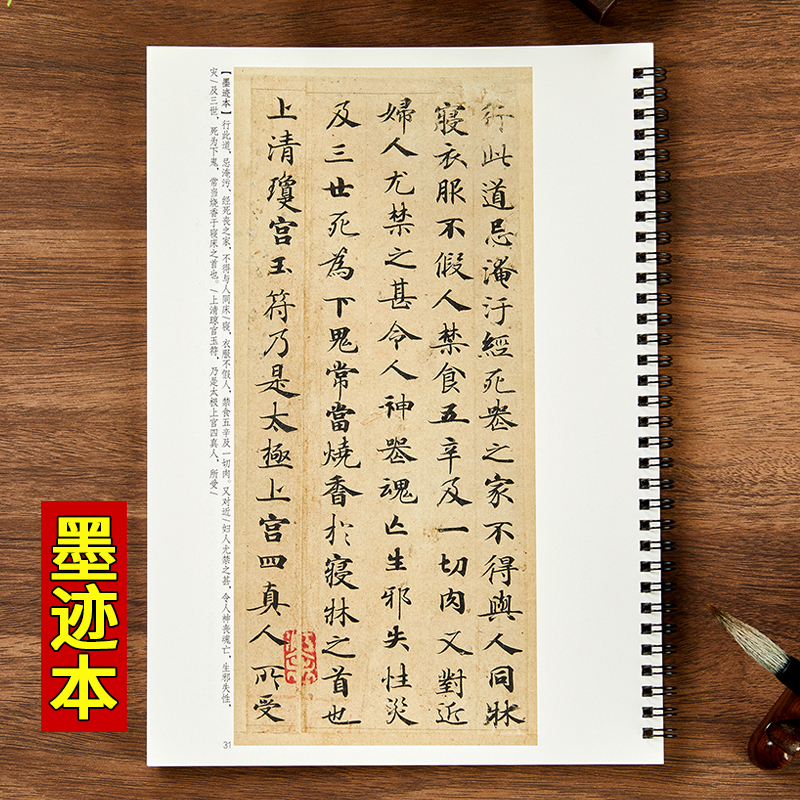 行此道忌淹汙經死喪之家不得與人同牀
寢衣服不假人禁食五辛及一切肉又對近
婦人尤禁之甚令人神喪魂亡生邪失性災
及三世死為下鬼常當燒香於寢牀之首也
上清瓊宮玉符乃是太極上宮四真人所受
【墨迹本】行此道，忌淹污、经死丧之家，不得与人同床/寝，衣服不假人，禁食五辛及一切肉。又对近/妇人尤禁之甚，令人神丧魂亡，生邪失性，
灾/及三世，死为下鬼，常当烧香于寝床之首也。/上清琼宫玉符，乃是太极上宫四真人，所受/
31
墨迹本